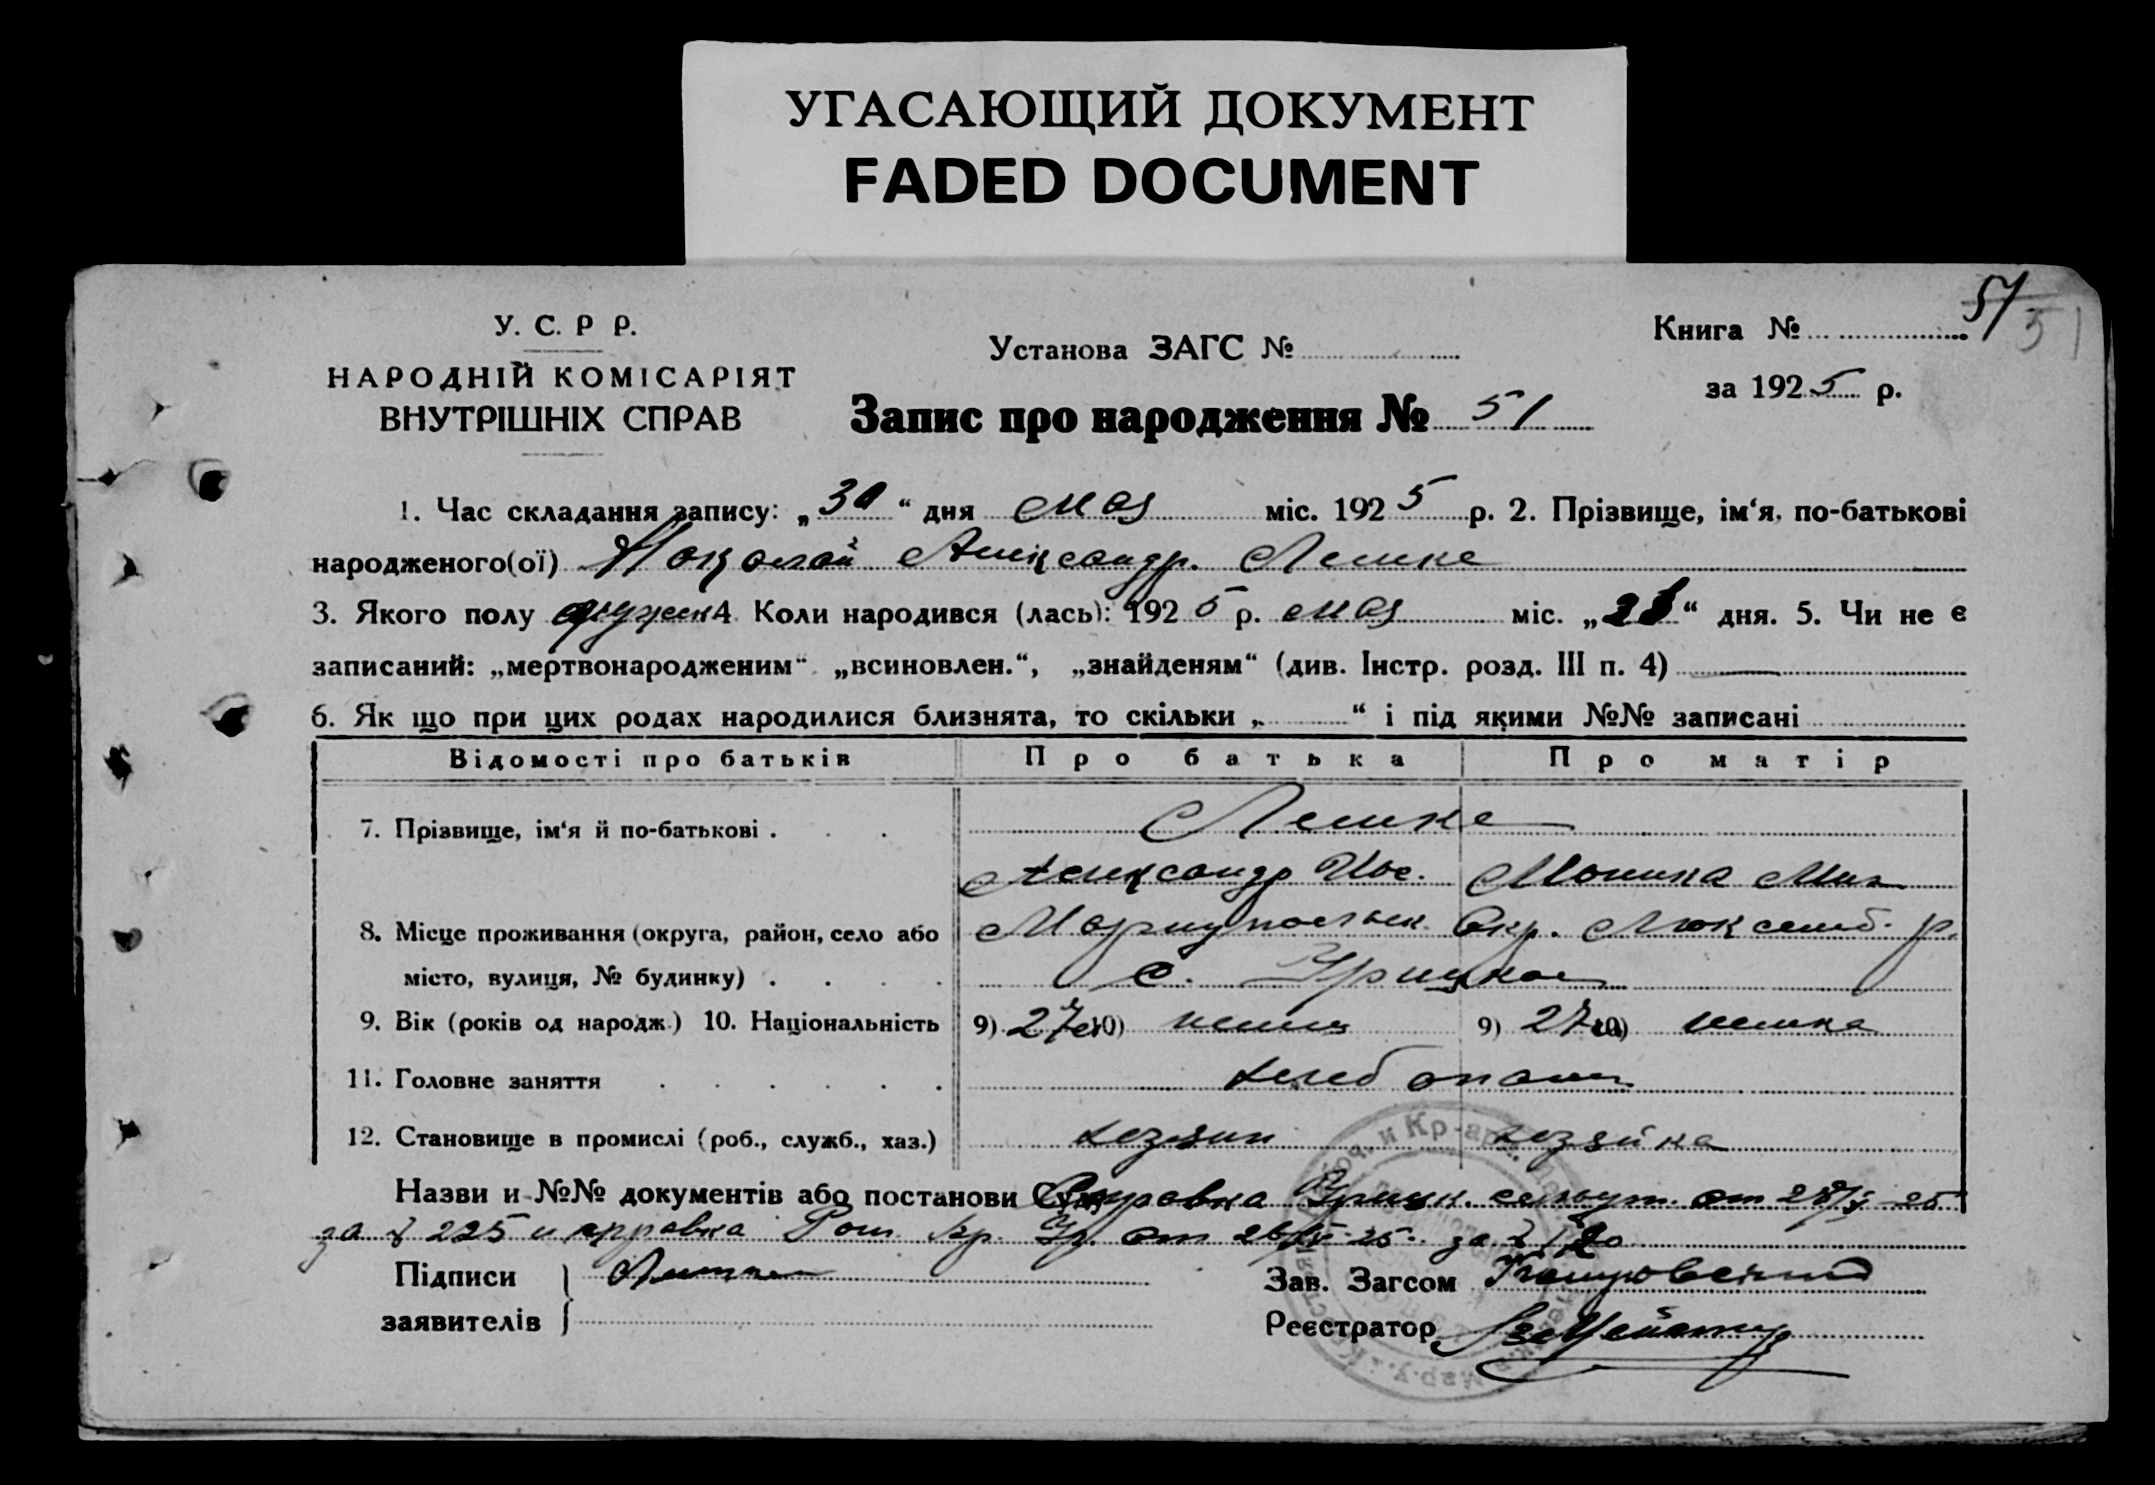 УГАСАЮЩИЙ ДОКУМЕНТ
FADED DOCUMENT
У. С. Р Р.
НАРОДНІЙ КОМІСАРІЯТ
ВНУТРІШНІХ СПРАВ
Установа ЗАГС №
Запис про народження № 51
Книга № 51
51
за 1925 р.
1. Час складання запису: „30“ дня мая міс. 1925 р. 2. Прізвище, ім‘я, по-батькові
народженого(ої) Николай Александр. Лешке
3. Якого полу мужск 4 Коли народився (лась): 1925 р. мая міс. „“ дня. 5. Чи не є
записаний: „мертвонародженим“ „всиновлен.“, „знайденям“ (див. Інстр. розд. III п. 4)
6. Як що при цих родах народилися близнята, то скільки „ “ і під якими №№ записані
Відомості про батьків Про батька Про матір
7. Прізвище, ім‘я й по-батькові . Лешке
Александр Иос. Моника Мих
8. Місце проживання (округа, район, село або Мариупольск. Окр. Люксемб. р.
місто, вулиця, № будинку) . с. Урицкое
9. Вік (років од народж.) 10. Національність 9) 27 10) немец 9) 27 10) немка
11. Головне заняття хлебопашец
12. Становище в промислі (роб., служб., хаз.) хозяин хозяйка
Назви и №№ документів або постанови Суду Справка Урицк. от 25
за № 225 и справка от 25. за №
Підписи
заявителів
Зав. Загсом
Реєстратор